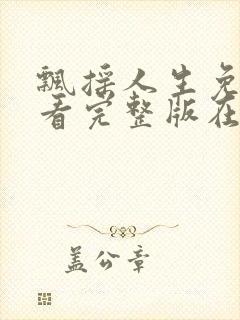 飘摇人生免
看完整版在
盖公章